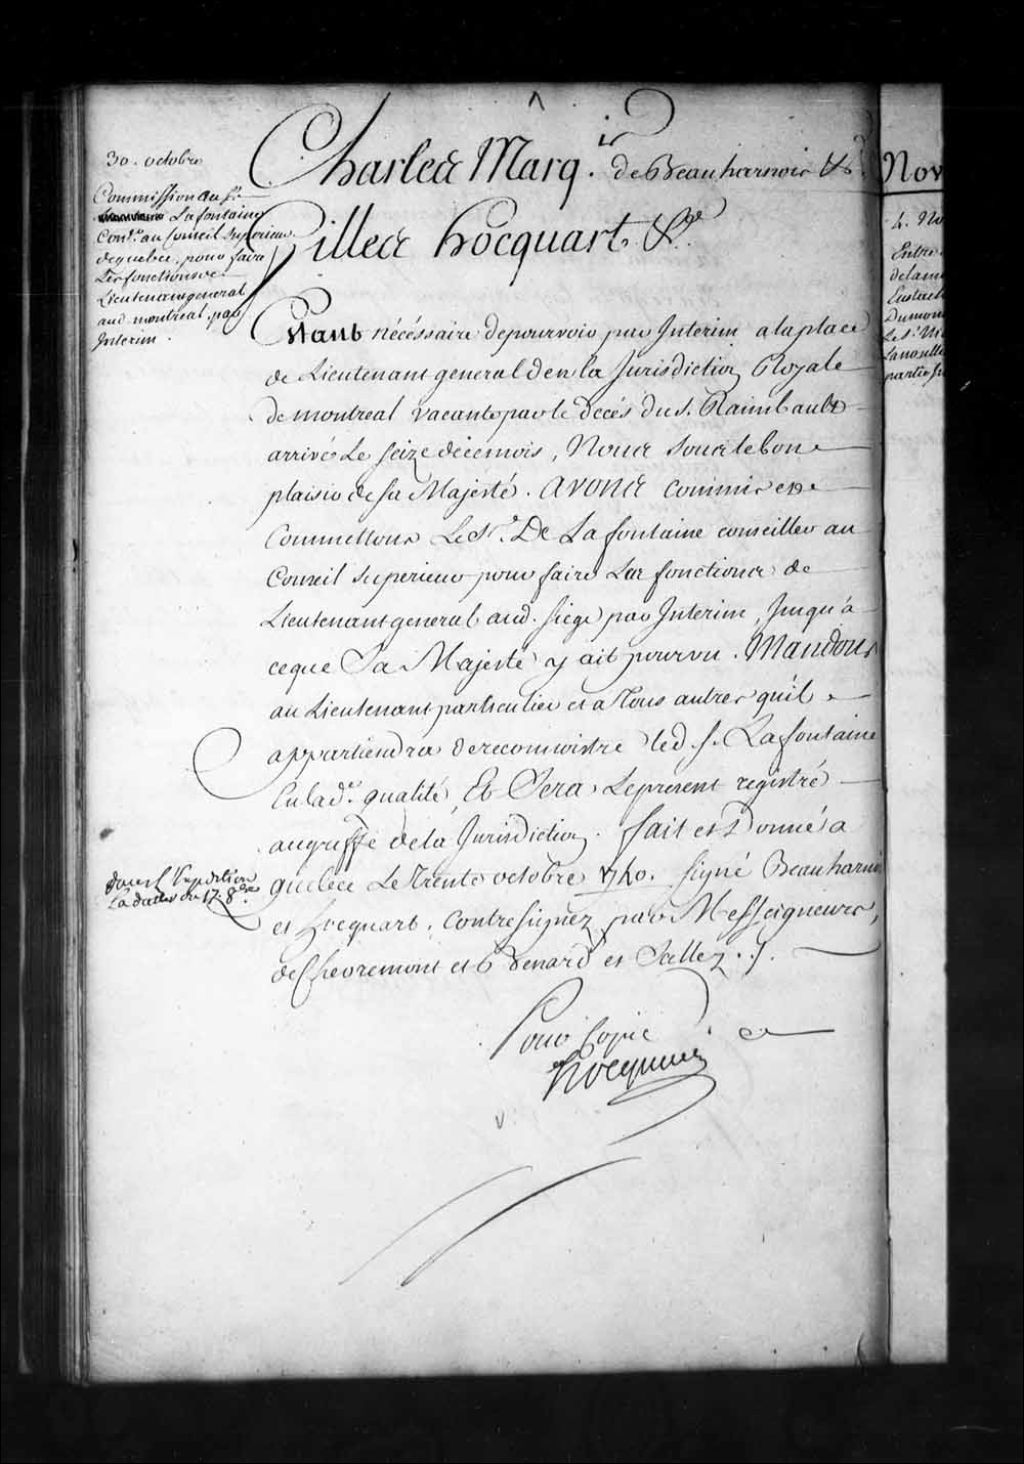 30. octobre
Commission au Sr.
Lafontaine
Conser. au Conseil Superieur
de quebec, pour faire
les fonctions de
Lieutenant general
aud. montreal, par
Interim.
Charles Marq.is de Beauharnois &c.
Gilles hocquart &c.
Etant nécéssaire de pourvoir par Interim a la place
de Lieutenant general den la Jurisdiction Royale
de montreal vacante par le decés du s. Raimbault
arrivé le seize de ce mois, Nous sous le bon
plaisir de sa Majesté. avons commis et
Commettons Le Sr. De Lafontaine conseiller au
Conseil Superieur pour faire Les fonctions de
Lieutenant general aud. siege par Interim, Jusqu'a
ceque Sa Majesté y ait pourvu. Mandons
au Lieutenant particulier et a tous autres qu'il
appartiendra de reconnoistre led. s. Lafontaine
En lad.e qualité, Et Sera Le present registré
au greffe de la Jurisdiction. fait et Donné a
quebec Le Trente octobre 1740. signé Beauharnois
et hocquart. Contresignez par Messeigneurs,
de Chevremont et Benard et Scellez ./.
dans l'expedition
la datter du 17. 8bre
Pour Copie
hocquart
Nov
4. No
Entre